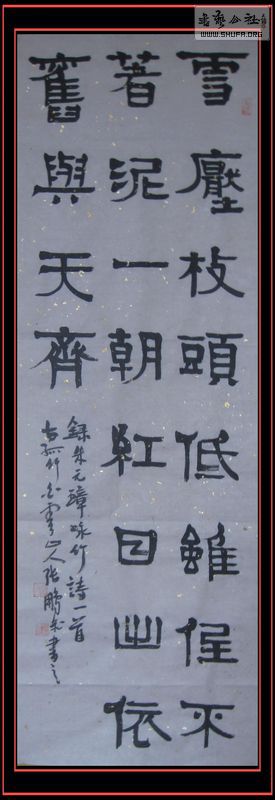 書藝公社
WWW.SHUFA.ORG
雪壓枝頭低雖低不
著泥一朝紅日出依
舊與天齊
錄朱元璋咏竹詩一首
古孤竹山人張鵬書之